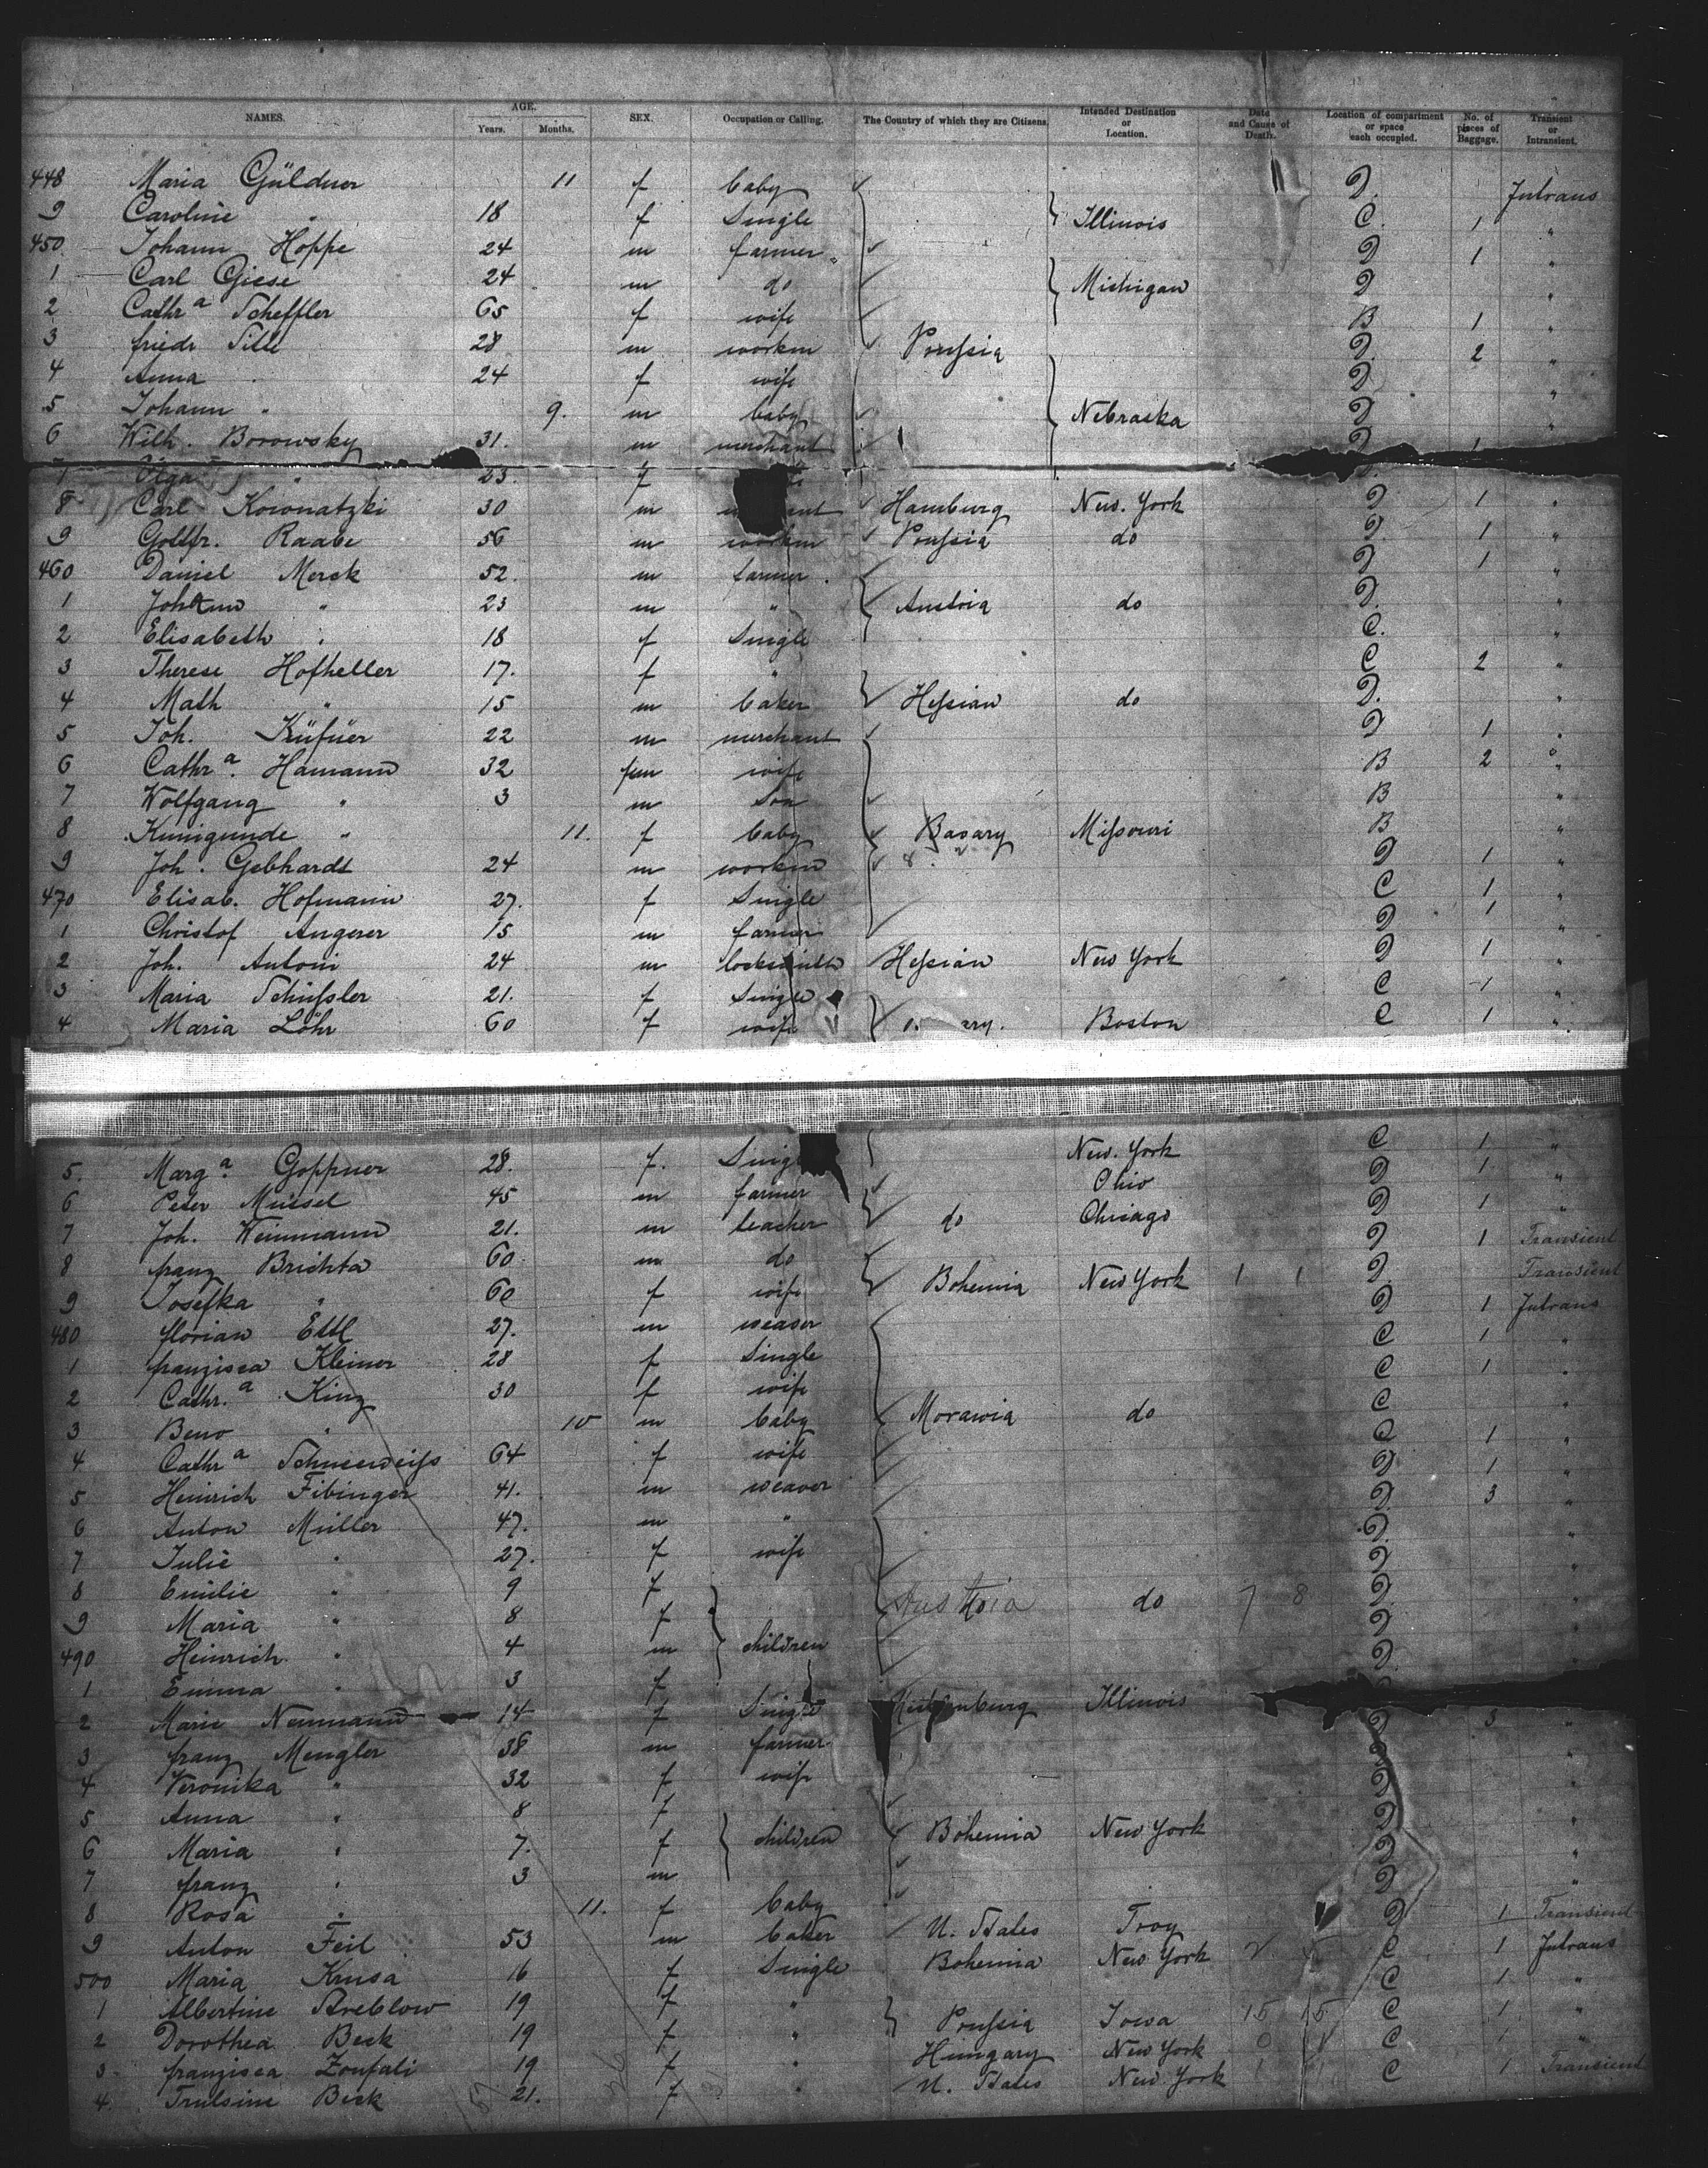 NAMES. AGE. Years. Months. SEX. Occupation or Calling. The Country of which they are Citizens. Intended Destination or Location. Date and Cause of Death. Location of compartment or space each occupied. No. of pieces of Baggage. Transient or Intransient.
448 Maria Güldner 11 f baby D. Intrans
9 Caroline " 18 f Single Illinois C. 1 "
450. Johann Hoppe 24 m farmer D 1 "
1 Carl Giese 24 m do Michigan D "
2 Cathra Scheffler 65 f wife B 1 "
3 friedr Tille 28 m workm Prussia D 2 "
4 Anna " 24 f wife D "
5 Johann " 9. m baby Nebraska D "
6 Wilh. Borowsky 31. m merchant D 1
7 Olga " 23. f
8 Carl Koronatzki 30 m Hamburg New. York D 1 "
9 Gottfr. Raabe 56 m workm Prussia do D. 1 "
460 Daniel Merck 52. m farmer D 1 "
1 Johann " 23 m " Austria do D. "
2 Elisabeth " 18 f Single C. "
3 Therese Hofheller 17. f " C 2 "
4 Math " 15 m baker Hessian do D. "
5 Joh. Küfner 22 m merchant D 1 "
6 Cathra. Hamann 32 fem wife B 2 "
7 Wolfgang " 3 m Son B "
8 Kunigunde " 11. f baby Bavary Missouri B "
9 Joh. Gebhardt 24 m workm D 1 "
470 Elisab. Hofmann 27. f Single C 1 "
1 Christof Angerer 15 m farmer D 1 "
2 Joh. Antoni 24 m locksmith Hessian New York D 1 "
3 Maria Schüssler 21. f Single C 1 "
4 Maria Löhr 60 f wife ary. Boston C 1 "
5. Marga. Goppner 28. f. Single New. York C 1 "
6 Peter Müssel 45 m farmer Ohio D 1 "
7 Joh. Weinmann 21. m teacher do Chicago D 1 "
8 franz Brichta 60. m do D 1 Transient
9 Josefka " 60 f wife Bohemia New York 1 1 D. Transient
480 florian Ettl 27. m weaver D 1 Intrans
1 franzisca Kleiner 28 f Single C 1 "
2 Cathr.a Kinz 30 f wife C 1 "
3 Beno " 10 m baby Morawia do C "
4 Cathra Schneeweiss 64 f wife C 1 "
5 Heinrich Fibinger 41. m weaver D 1 "
6 Anton Müller 47. m " D. 3 "
7 Julie " 27. f wife D. "
8 Emilie " 9 f D "
9 Maria " 8 f Austria do 7 8 D "
490 Heinrich " 4 m children D "
1 Emma " 3 f D "
2 Marie Neumann 14 f Single Illinois
3 franz Mengler 38 m farmer D 3 "
4 Veronika " 32 f wife D "
5 Anna " 8 f D "
6 Maria " 7. f children Bohemia New York D "
7 franz " 3 m D "
8 Rosa " 11. f baby D "
9 Anton Feil 53 m baker U. States Troy D 1 Transient
500 Maria Krusa 16 f Single Bohemia New York 2 C 1 Intrans
1 Albertine Streblow 19 f " C 1 "
2 Dorothea Beck 19 f " Prussia Iowa 15 15 C 1 "
3 franzisca Zoufali 19 f " Hungary New York 0 C 1 "
4. Trulsine Beck 21. f " U. States New York 1 1 C 1 Transient